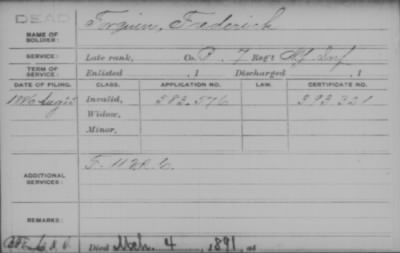 DEAD
NAME OF SOLDIER: Frederick
SERVICE: Late rank, Co. 7 Reg't Inf
TERM OF SERVICE: Enlisted , 1 Discharged , 1
DATE OF FILING. CLASS. APPLICATION NO. LAW. CERTIFICATE NO.
1886 Aug Invalid, 583.576 393.321
Widow,
Minor,
ADDITIONAL SERVICES:
REMARKS:
Died Mch. 4 , 1891, at